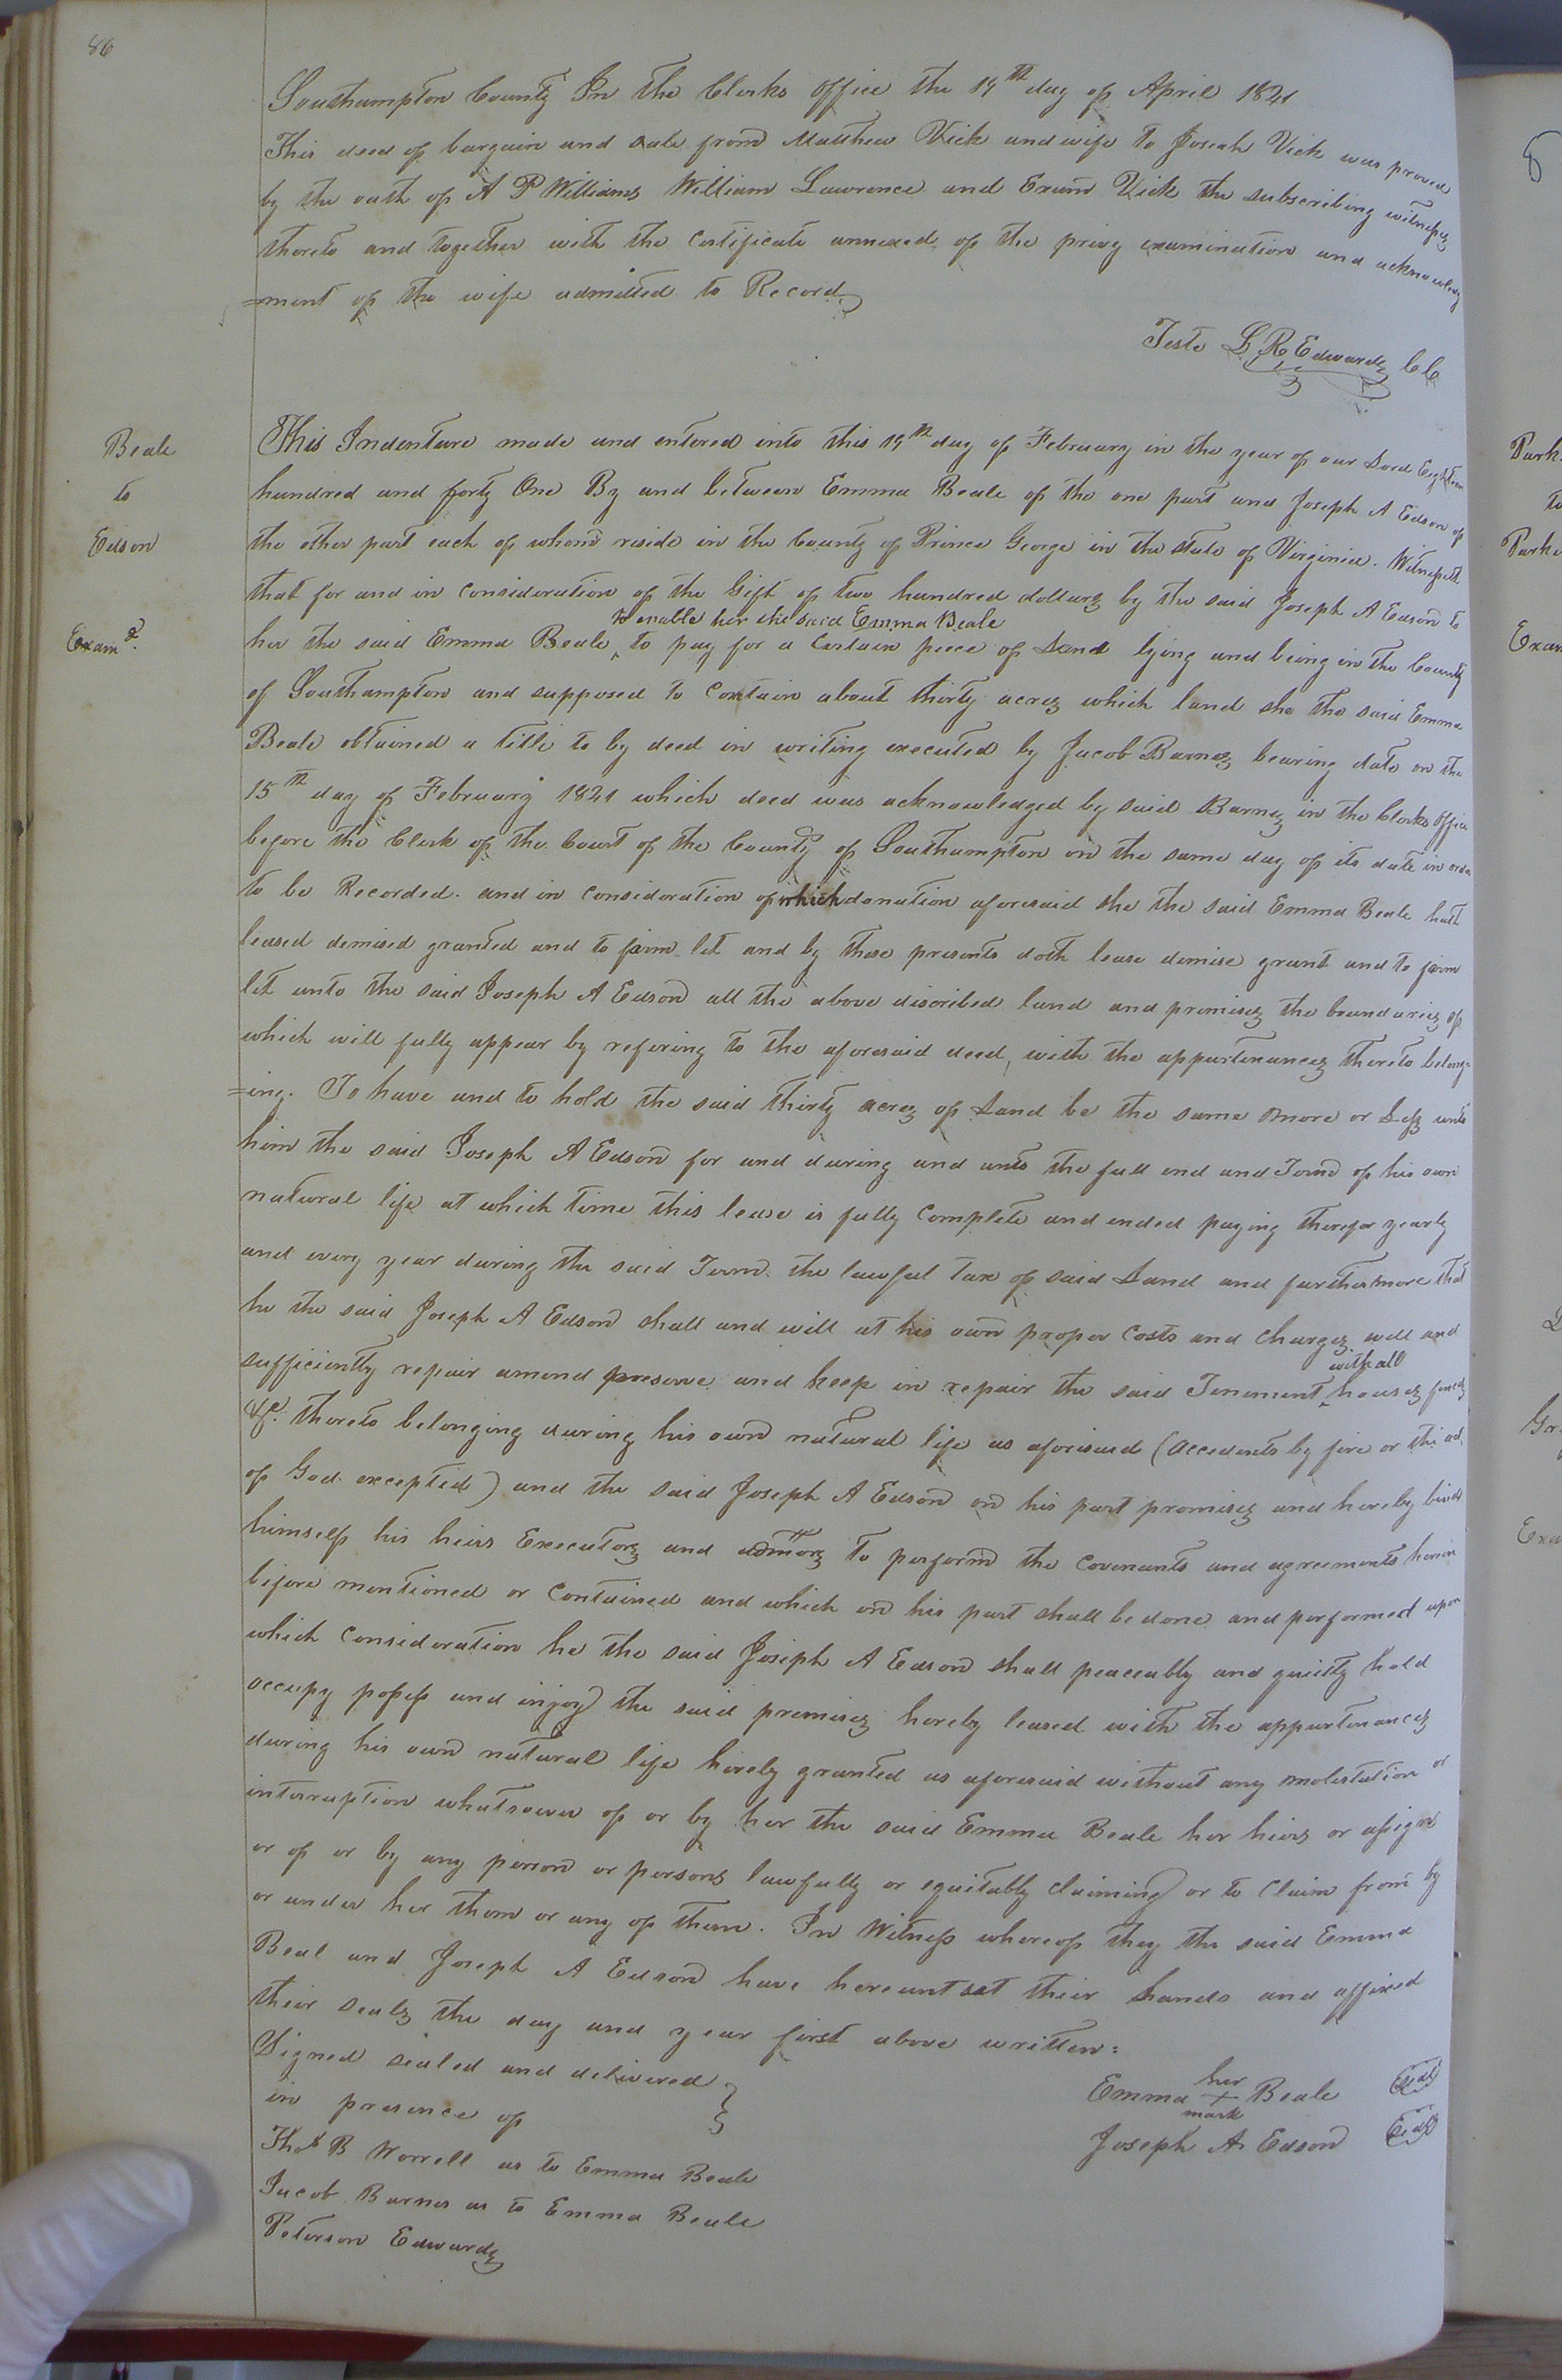 86
Southampton County In the Clerks office the 19th day of April 1841
This deed of bargain and sale from Matthew Vick and wife to Josiah Vick was proved
by the oath of A P Williams William Lawrence and Exum Vick the subscribing witnesses
thereto and together with the certificate annexed of the privy examination and acknowledg
=ment of the wife admitted to Record
Teste L R Edwards CC
Beale
to
Edson
Examd.
This Indenture made and entered into this 19th day of February in the year of our Lord Eighteen
hundred and forty One By and between Emma Beale of the one part and Joseph A Edson of
the other part each of whom reside in the County of Prince George in the State of Virginia. Witnesseth
that for and in consideration of the Gift of two hundred dollars by the said Joseph A Edson to
to enable her the said Emma Beale
her the said Emma Beale ^ to pay for a Certain piece of Land lying and being in the County
of Southampton and supposed to Contain about thirty acres which land she the said Emma
Beale obtained a title to by deed in writing executed by Jacob Barnes bearing date on the
15th day of February 1841 which deed was acknowledged by said Barnes in the Clerks office
before the Clerk of the Court of the County of Southampton on the same day of its date in order
to be Recorded. and in consideration of which donation aforesaid she the said Emma Beale hath
leased demised granted and to farm let and by these presents doth lease demise grant and to farm
let unto the said Joseph A Edson all the above discribed land and premises the boundaries of
which will fully appear by refering to the aforesaid deed, with the appurtenances thereto belong-
=ing. To have and to hold the said thirty acres of Land be the same more or Less unto
him the said Joseph A Edson for and during and unto the full end and Term of his own
natural life at which time this lease is fully Complete and ended paying therefor yearly
and every year during the said Term the lawful tax of said Land and furthermore that
he the said Joseph A Edson shall and will at his own proper Costs and Charges well and
sufficiently repair amend preserve and keep in repair the said Tenement ^ with all houses fences
&c. thereto belonging during his own natural life as aforesaid (accedents by fire or the act
of God excepted) and the said Joseph A Edson on his part promises and hereby binds
himself his heirs Executors and admors to perform the Covenants and agreements herein
before mentioned or Contained and which on his part shall be done and performed upon
which Consideration he the said Joseph A Edson shall peaceably and quietly hold
occupy possess and injoy the said premises hereby leased with the appurtenances
during his own natural life hereby granted as aforesaid without any molestation or
interruption whatsoever of or by her the said Emma Beale her hiers or assigns
or of or by any person or persons lawfully or equitably claiming or to Claim from by
or under her them or any of them. In Witness whereof they the said Emma
Beal and Joseph A Edson have hereunt set their hands and affixed
their seals the day and year first above written:
Signed sealed and delivered }
in presence of }
Thos B Worrell as to Emma Beale
Jacob Barnes as to Emma Beale
Peterson Edwards
her
Emma + Beale Seal
mark
Joseph A Edson Seal
Park
to
Parke
Exam
Exa